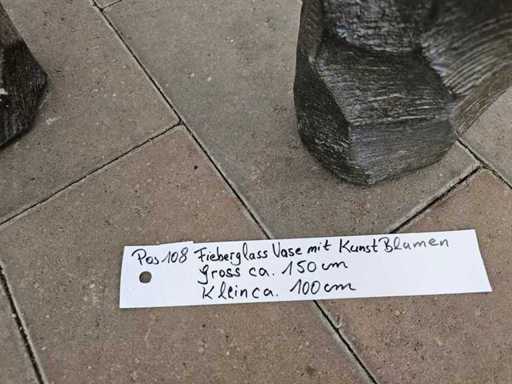 Pos 108 Fieberglass Vase mit Kunst Blumen
gross ca. 150 cm
Klein ca. 100 cm